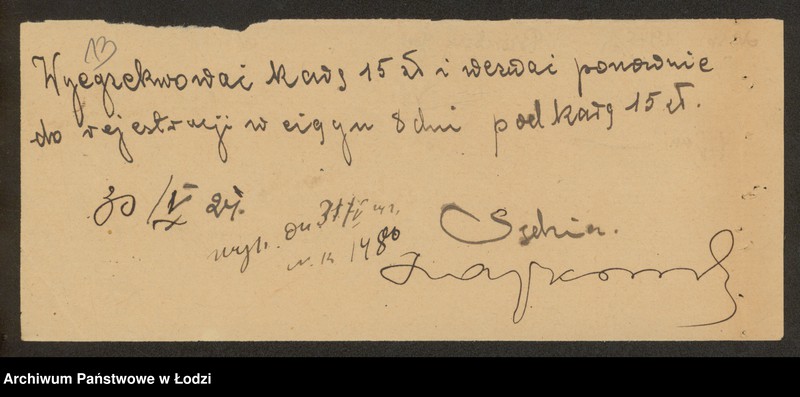 13
Wyegzekwować karę 15 zł i wezwać ponownie
do rejestracji w ciągu 8 dni pod karą 15 zł.
30/V 27.
wysł. dn 31/V
1480
Sędzia.
Archiwum Państwowe w Łodzi